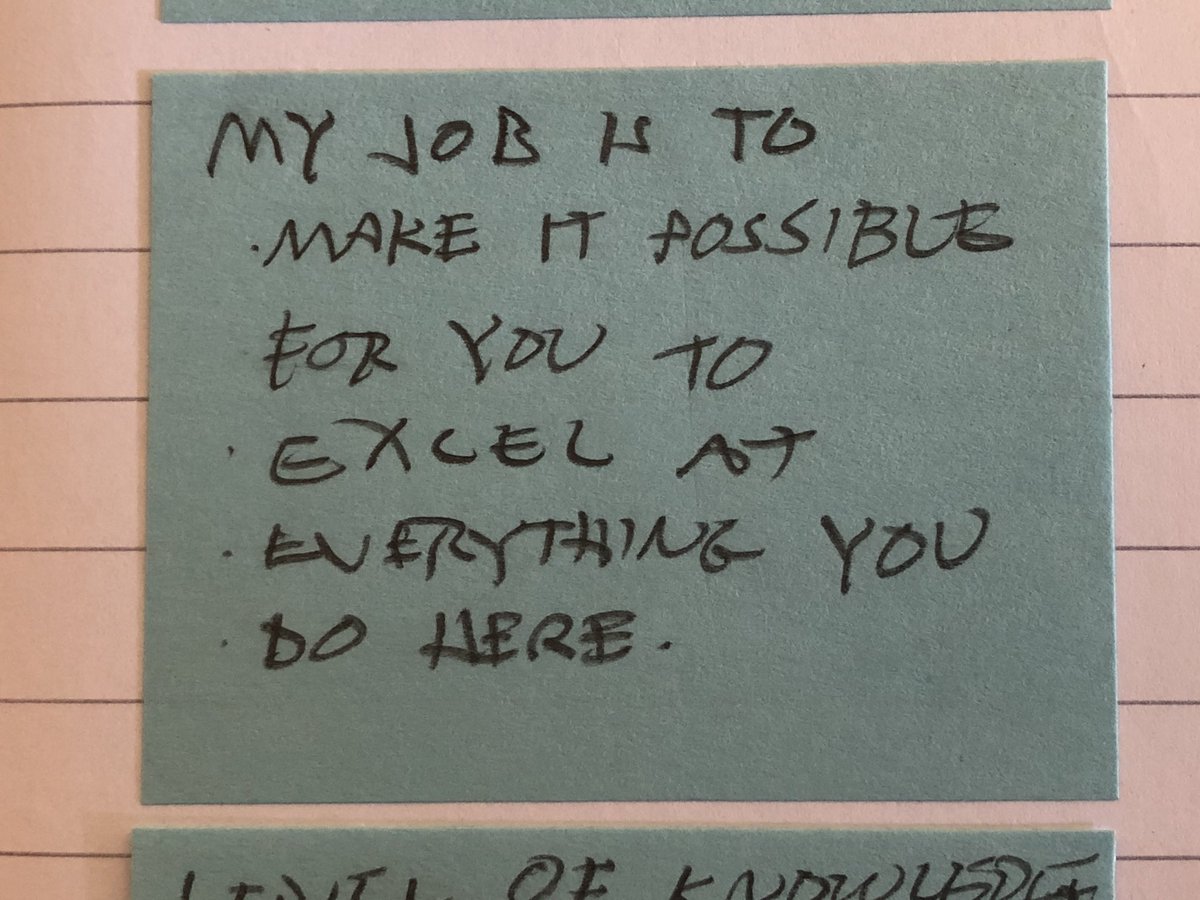 MY JOB IS TO
·MAKE IT POSSIBLE
FOR YOU TO
· EXCEL AT
· EVERYTHING YOU
· DO HERE.
LEVEL OF KNOWLEDGE